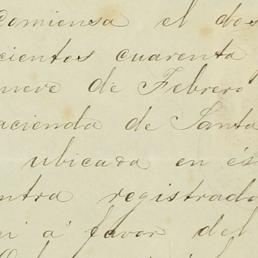 Comiensa el dos
cientos cuarenta
nueve de Febrero
acienda de Santa
ubicada en és
ntra registrado
á favor del